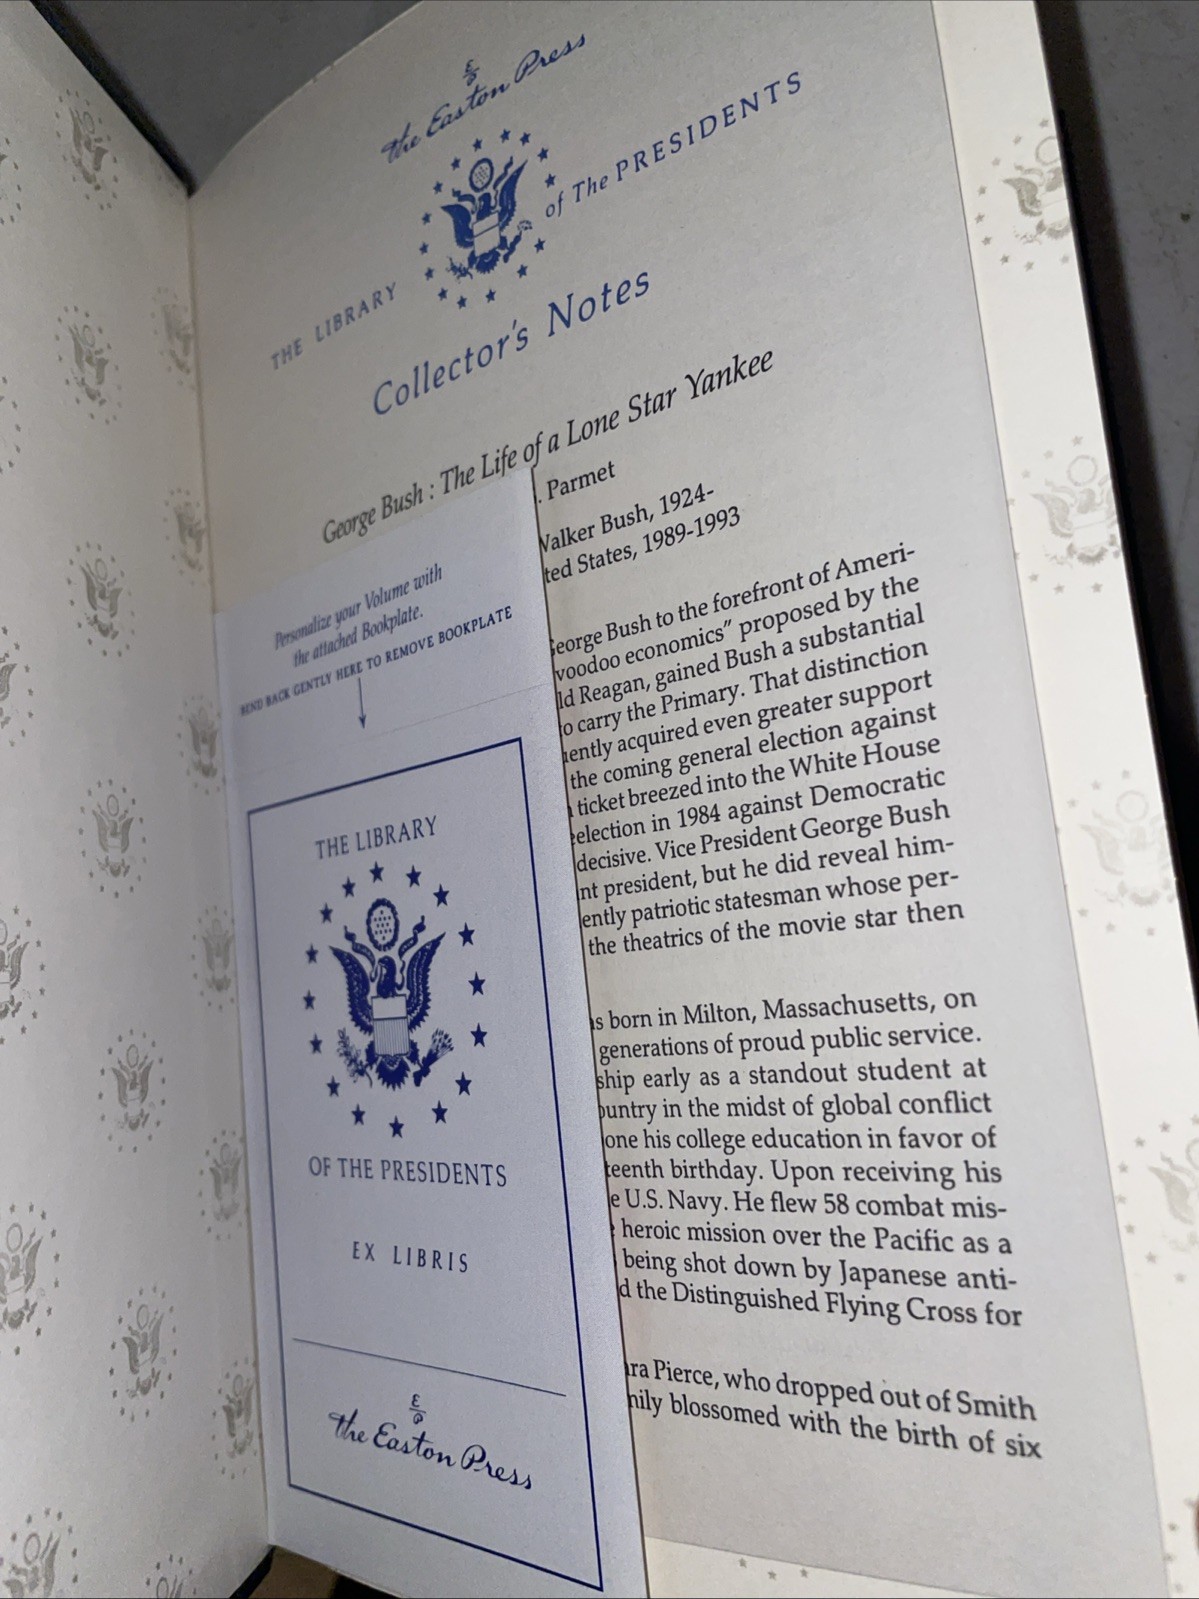 the Easton Press
THE LIBRARY of The PRESIDENTS
Collector's Notes
George Bush : The Life of a Lone Star Yankee
. Parmet
Walker Bush, 1924-
ted States, 1989-1993
George Bush to the forefront of Ameri-
voodoo economics" proposed by the
ld Reagan, gained Bush a substantial
to carry the Primary. That distinction
ently acquired even greater support
the coming general election against
ticket breezed into the White House
election in 1984 against Democratic
decisive. Vice President George Bush
nt president, but he did reveal him-
ently patriotic statesman whose per-
the theatrics of the movie star then
as born in Milton, Massachusetts, on
generations of proud public service.
ship early as a standout student at
ountry in the midst of global conflict
one his college education in favor of
teenth birthday. Upon receiving his
e U.S. Navy. He flew 58 combat mis-
heroic mission over the Pacific as a
being shot down by Japanese anti-
d the Distinguished Flying Cross for
ra Pierce, who dropped out of Smith
mily blossomed with the birth of six
Personalize your Volume with
the attached Bookplate.
BEND BACK GENTLY HERE TO REMOVE BOOKPLATE
THE LIBRARY
OF THE PRESIDENTS
EX LIBRIS
the Easton Press